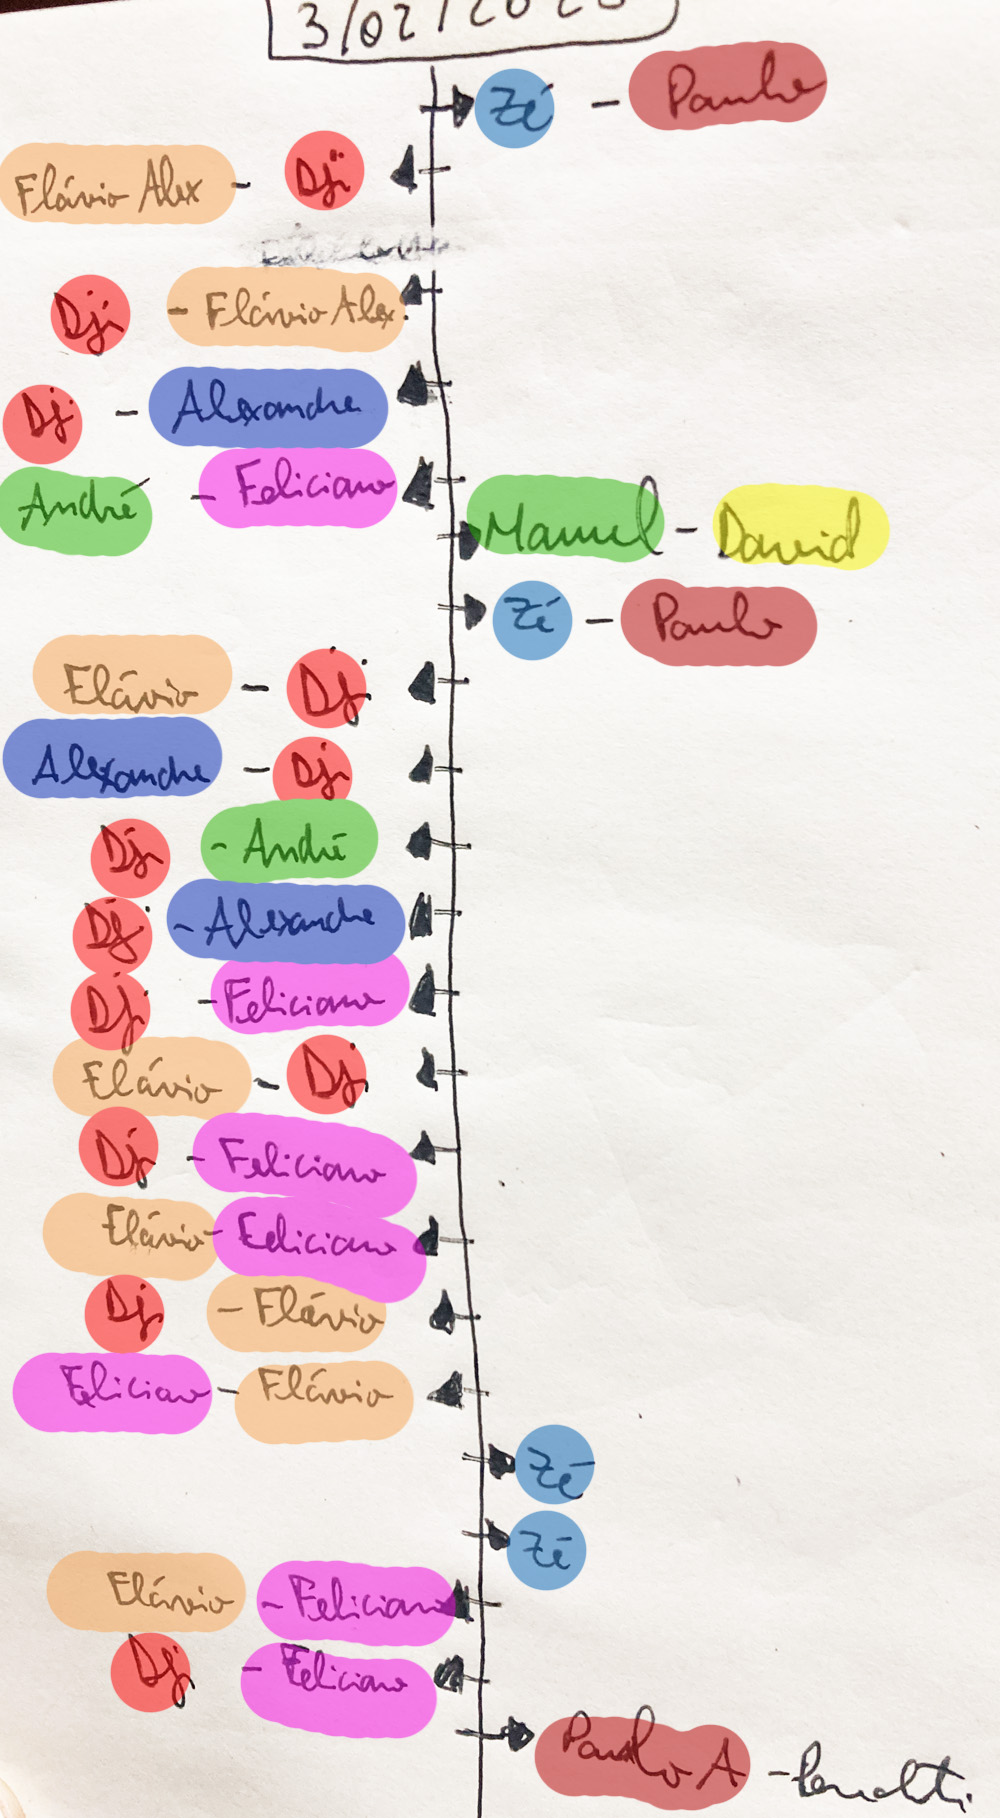 3/02/202
Zé - Paulo
Flávio Alex - Dji
Dji - Flávio Alex.
Dj. - Alexandre
André - Feliciano
Manuel - David
Zé - Paulo
Flávio - Dj.
Alexandre - Dj.
Dj. - André
Dj. - Alexandre
Dj. - Feliciano
Flávio - Dj
Dj. - Feliciano
Flávio - Feliciano
Dj. - Flávio
Feliciano - Flávio
Zé
Zé
Flávio - Feliciano
Dj. - Feliciano
Paulo A - Penalti